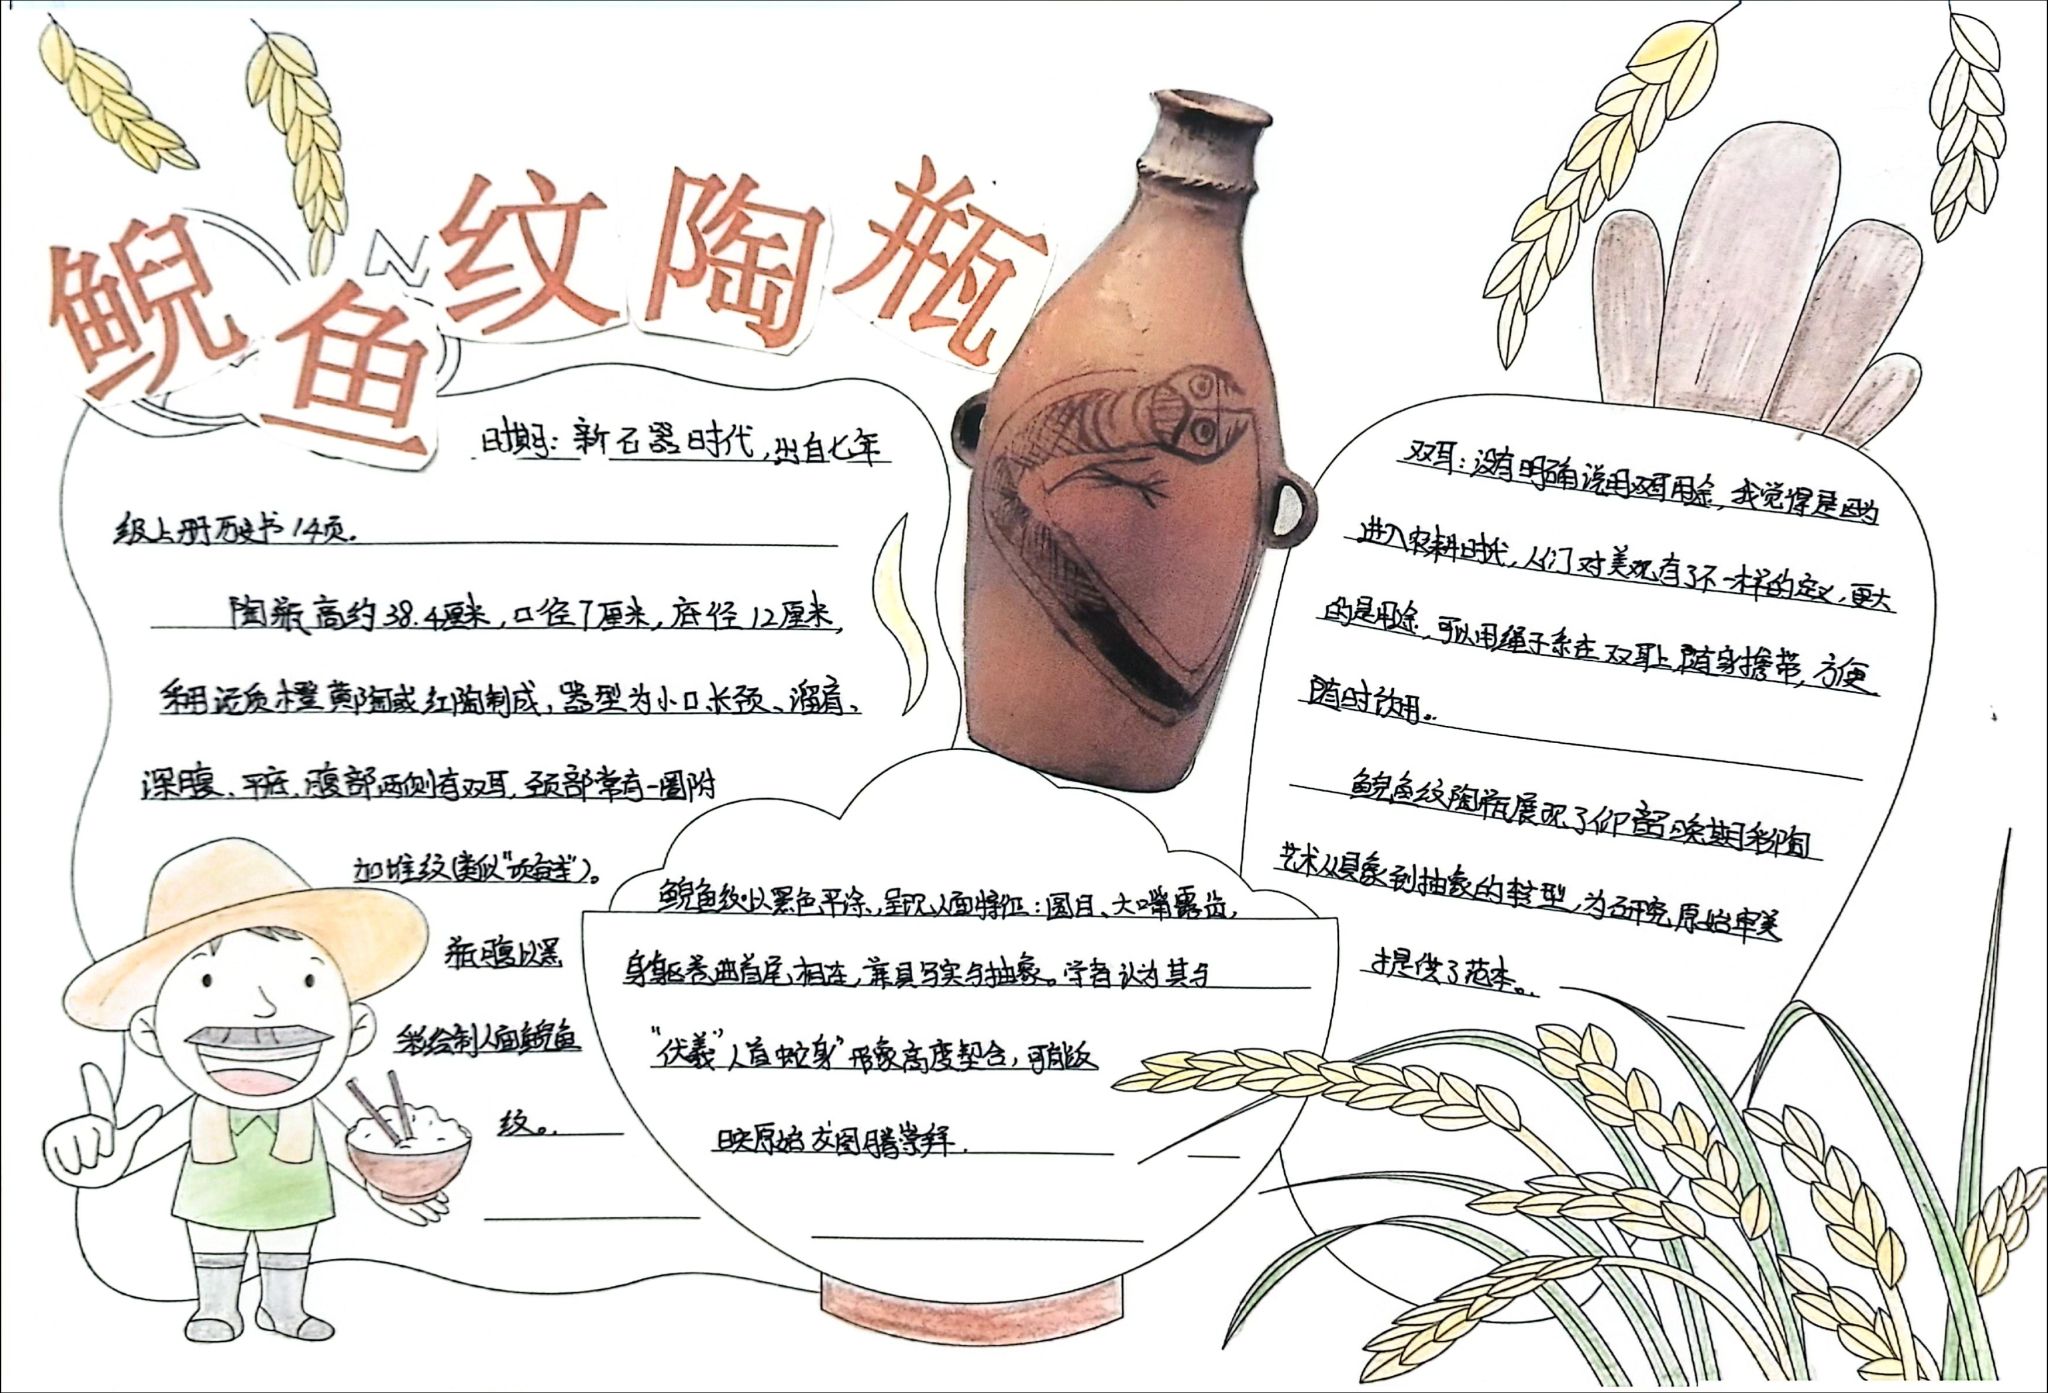 鲵鱼纹陶瓶
时期：新石器时代，出自七年
级上册历史书14页。
陶瓶高约38.4厘米，口径7厘米，底径12厘米，
采用泥质橙黄陶或红陶制成，器型为小口长颈、溜肩、
深腹、平底，腹部两侧有双耳，颈部常有一圈附
加堆纹(类似"项链")。
瓶腹以黑
彩绘制人面鲵鱼
纹。
鲵鱼纹以黑色平涂，呈现人面特征：圆目、大嘴露齿，
身躯卷曲首尾相连，兼具写实与抽象。学者认为其与
"伏羲"人首蛇身"形象高度契合，可能反
映原始龙图腾崇拜.
双耳：没有明确说用双耳用途，我觉得是因为
进入农耕时代，人们对美观有了不一样的定义，更大
的是用途，可以用绳子系在双耳上随身携带，方便
随时饮用。
鲵鱼纹陶瓶展现了仰韶晚期彩陶
艺术从具象到抽象的转型，为研究原始审美
提供了范本。